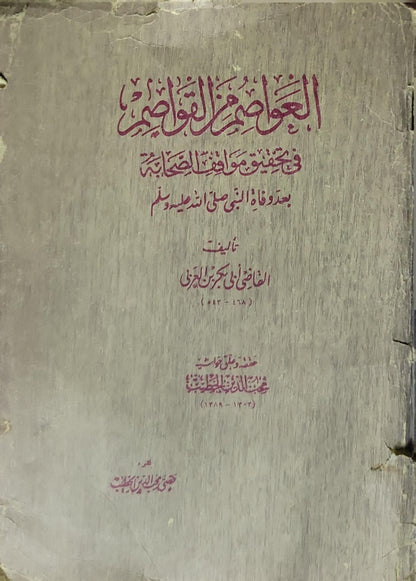 العواصم من القواصم
في تحقيق مواقف الصحابة
بعد وفاة النبي صلى الله عليه وسلم
تأليف
القاضي أبي بكر بن العربي
(٤٦٨ - ٥٤٣ هـ)
حققه وعلق حواشيه
محب الدين الخطيب
(١٣٠٣ - ١٣٨٩)
نشره
قصي محب الدين الخطيب